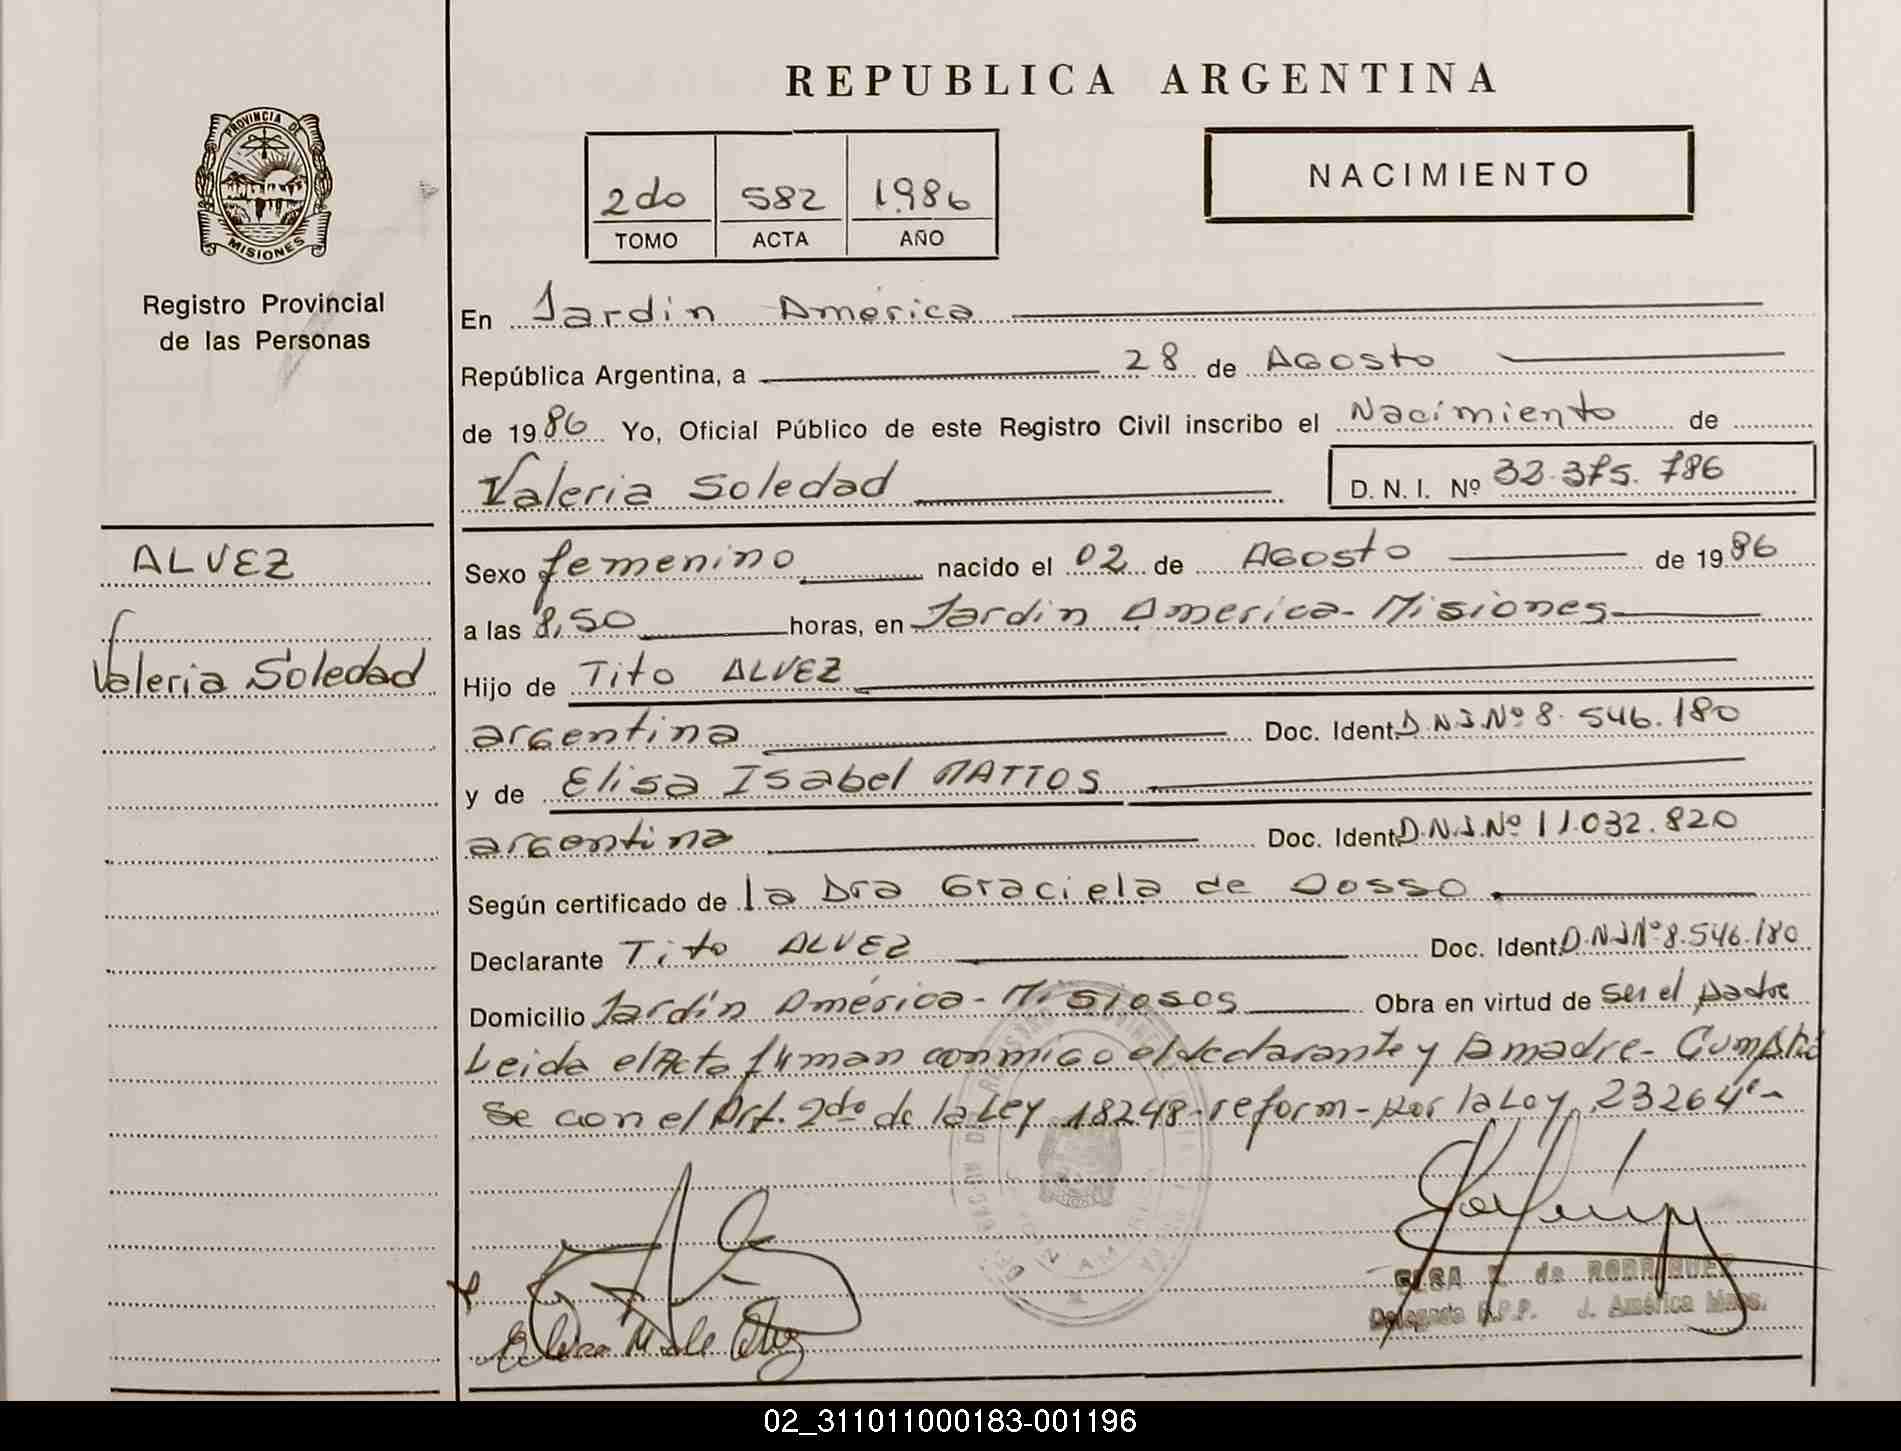 REPUBLICA ARGENTINA
PROVINCIA DE
MISIONES
Registro Provincial
de las Personas
2do 582 1.986
TOMO ACTA AÑO
NACIMIENTO
En Jardín América
República Argentina, a 28 de Agosto
de 1986 Yo, Oficial Público de este Registro Civil inscribo el Nacimiento de
Valeria Soledad
D. N. I. Nº 32.375.786
ALVEZ
Valeria Soledad
Sexo femenino nacido el 02 de Agosto de 1986
a las 8,50 horas, en Jardín America - Misiones
Hijo de Tito ALVEZ
argentina Doc. Ident. D.N.I.Nº 8.546.180
y de Elisa Isabel MATTOS
argentina Doc. Ident. D.N.I.Nº 11.032.820
Según certificado de la Dra Graciela de Dosso
Declarante Tito ALVEZ Doc. Ident. D.N.I Nº 8.546.180
Domicilio Jardín América - Obra en virtud de ser el padre
Leida el Acta firman conmigo el declarante y la madre -
se con el Art. 2do de la Ley 18248 - reform - por la Ley 23264 -
de RODRIGUEZ
Delegada R.P.P. J. América Mnes.
02_311011000183-001196